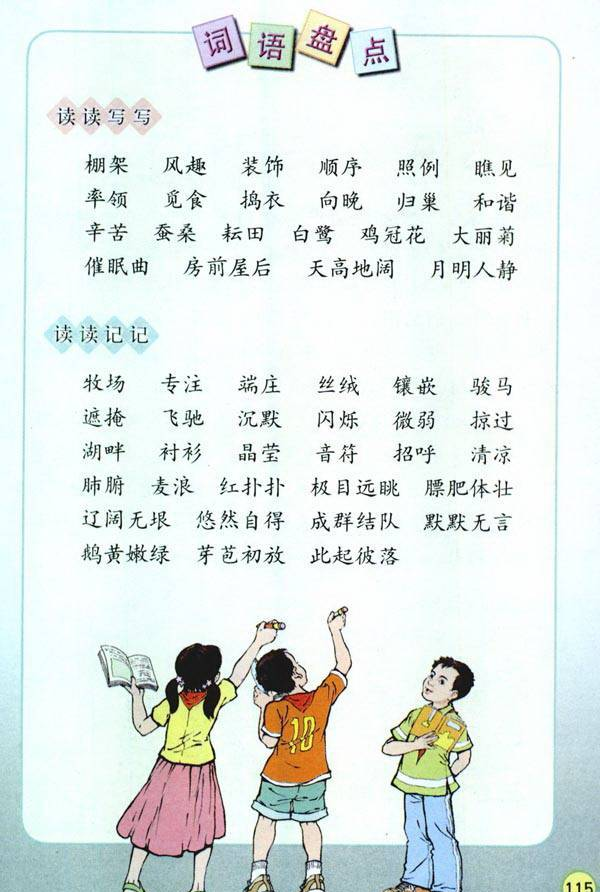 词语盘点
读读写写
棚架 风趣 装饰 顺序 照例 瞧见
率领 觅食 捣衣 向晚 归巢 和谐
辛苦 蚕桑 耘田 白鹭 鸡冠花 大丽菊
催眠曲 房前屋后 天高地阔 月明人静
读读记记
牧场 专注 端庄 丝绒 镶嵌 骏马
遮掩 飞驰 沉默 闪烁 微弱 掠过
湖畔 衬衫 晶莹 音符 招呼 清凉
肺腑 麦浪 红扑扑 极目远眺 膘肥体壮
辽阔无垠 悠然自得 成群结队 默默无言
鹅黄嫩绿 芽苞初放 此起彼落
10
115